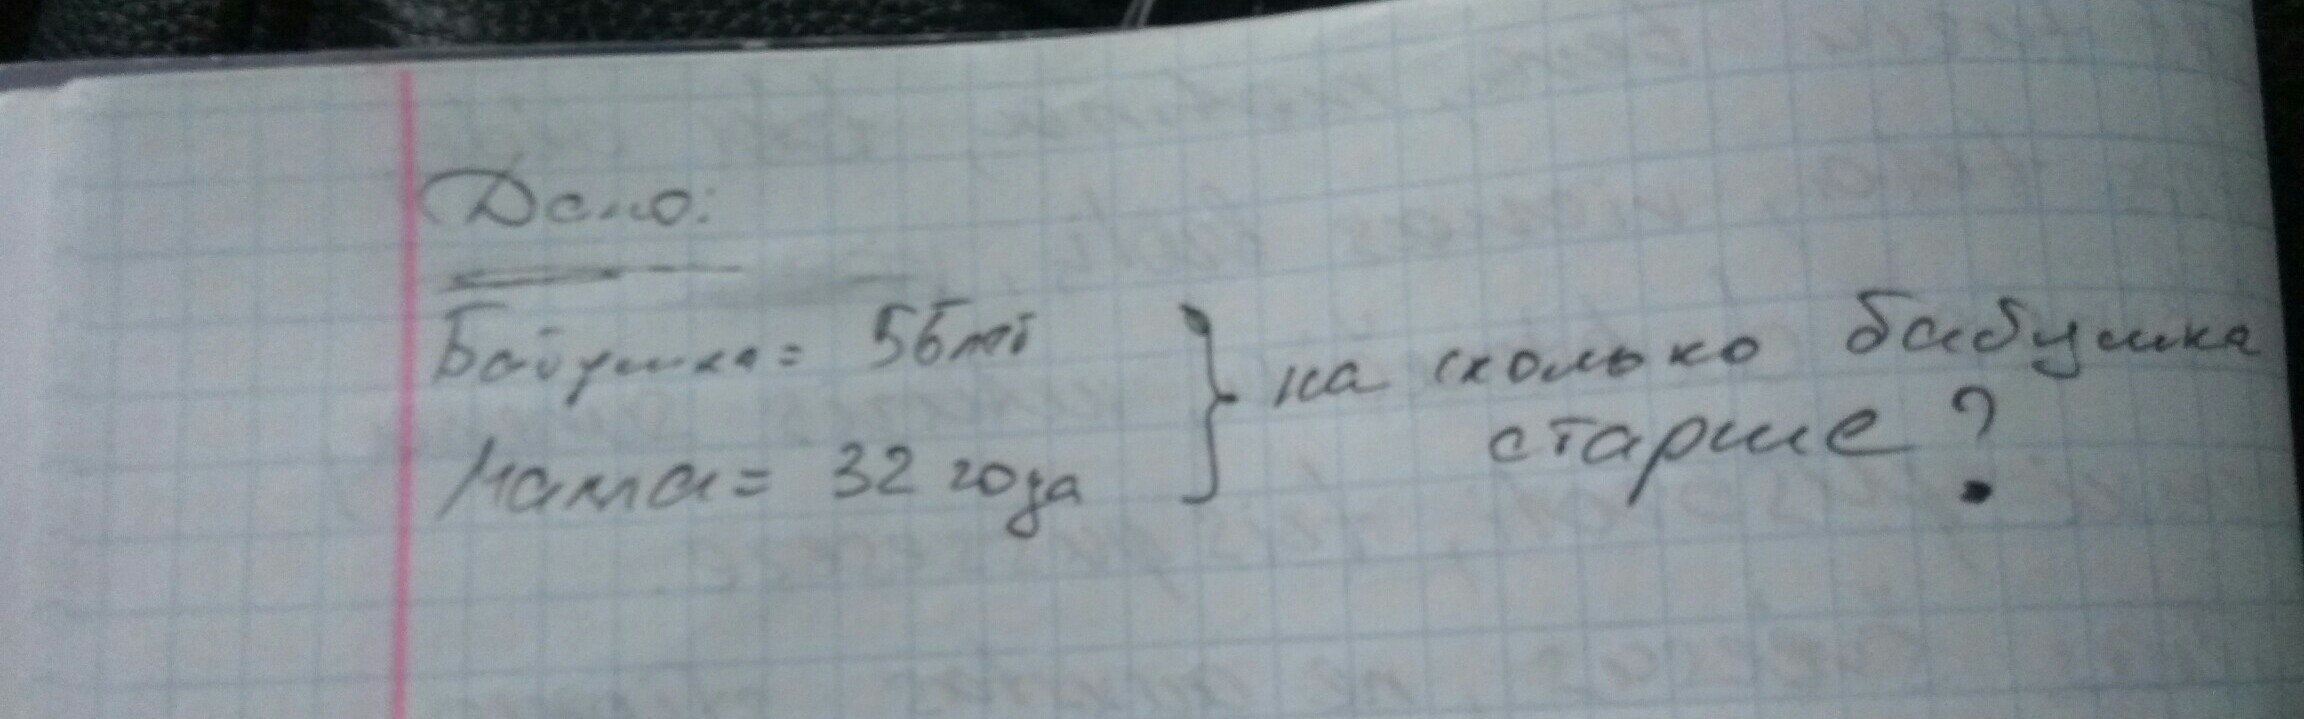 Дано:
Бабушка = 56 лет
Мама = 32 года
} на сколько бабушка
старше ?